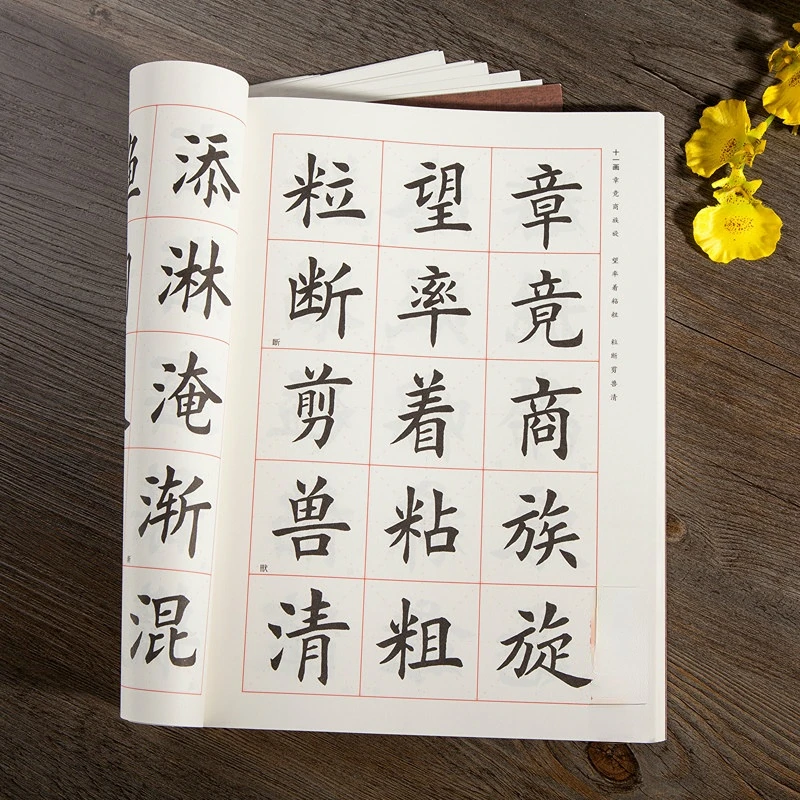 十一画 章竟商族旋 望率着粘粗 粒断剪兽清
章竟商族旋
望率着粘粗
粒断剪兽清
斷
獸
添淋淹渐混